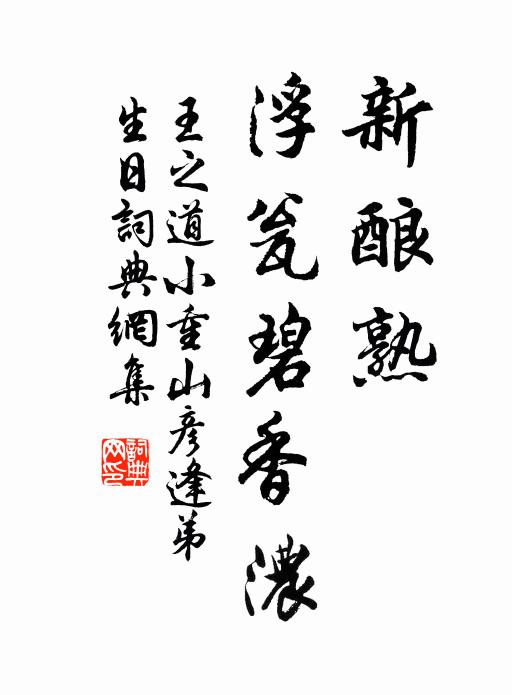 新酿熟
浮瓮碧香濃
王之道小重山彦逢弟
生日詞典網集
詞典
网印